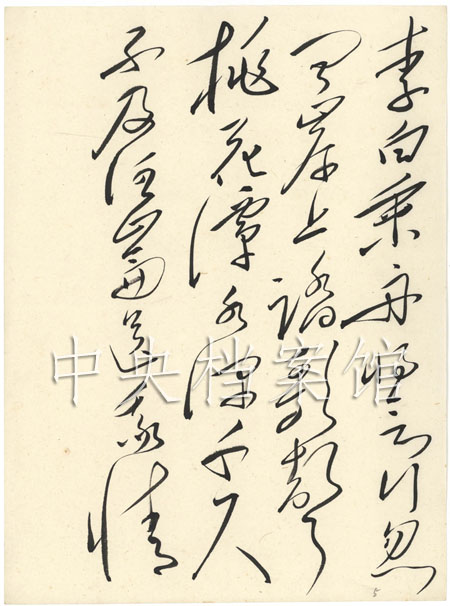 李白乘舟将欲行忽
闻岸上踏歌声
桃花潭水深千尺
不及汪伦送我情
中央档案馆